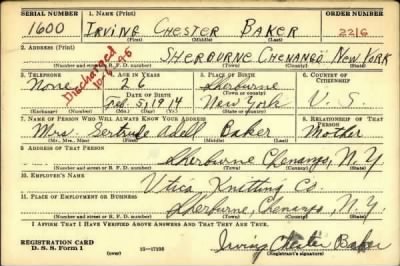 SERIAL NUMBER 1. NAME (Print) ORDER NUMBER
1600 IRVING CHESTER BAKER 2216
(First) (Middle) (Last)
2. ADDRESS (Print)
SHERBURNE CHENANGO NEW YORK
(Number and street or R. F. D. number) (Town) (County) (State)
Discharged
3. TELEPHONE 4. AGE IN YEARS 5. PLACE OF BIRTH 6. COUNTRY OF CITIZENSHIP
None 26 Sherburne
DATE OF BIRTH (Town or county)
Feb. 5, 1914 New York U. S.
(Exchange) (Number) (Mo.) (Day) (Yr.) (State or country)
7. NAME OF PERSON WHO WILL ALWAYS KNOW YOUR ADDRESS 8. RELATIONSHIP OF THAT PERSON
Mrs. Gertrude Adell Baker Mother
(Mr., Mrs., Miss) (First) (Middle) (Last)
9. ADDRESS OF THAT PERSON
Sherburne Chenango, N.Y.
(Number and street or R. F. D. number) (Town) (County) (State)
10. EMPLOYER'S NAME
Utica Knitting Co.
11. PLACE OF EMPLOYMENT OR BUSINESS
Sherburne, Chenango, N.Y.
(Number and street or R. F. D. number) (Town) (County) (State)
I AFFIRM THAT I HAVE VERIFIED ABOVE ANSWERS AND THAT THEY ARE TRUE.
REGISTRATION CARD
D. S. S. Form 1 (over) 16—17105 Irving Chester Baker
(Registrant's signature)